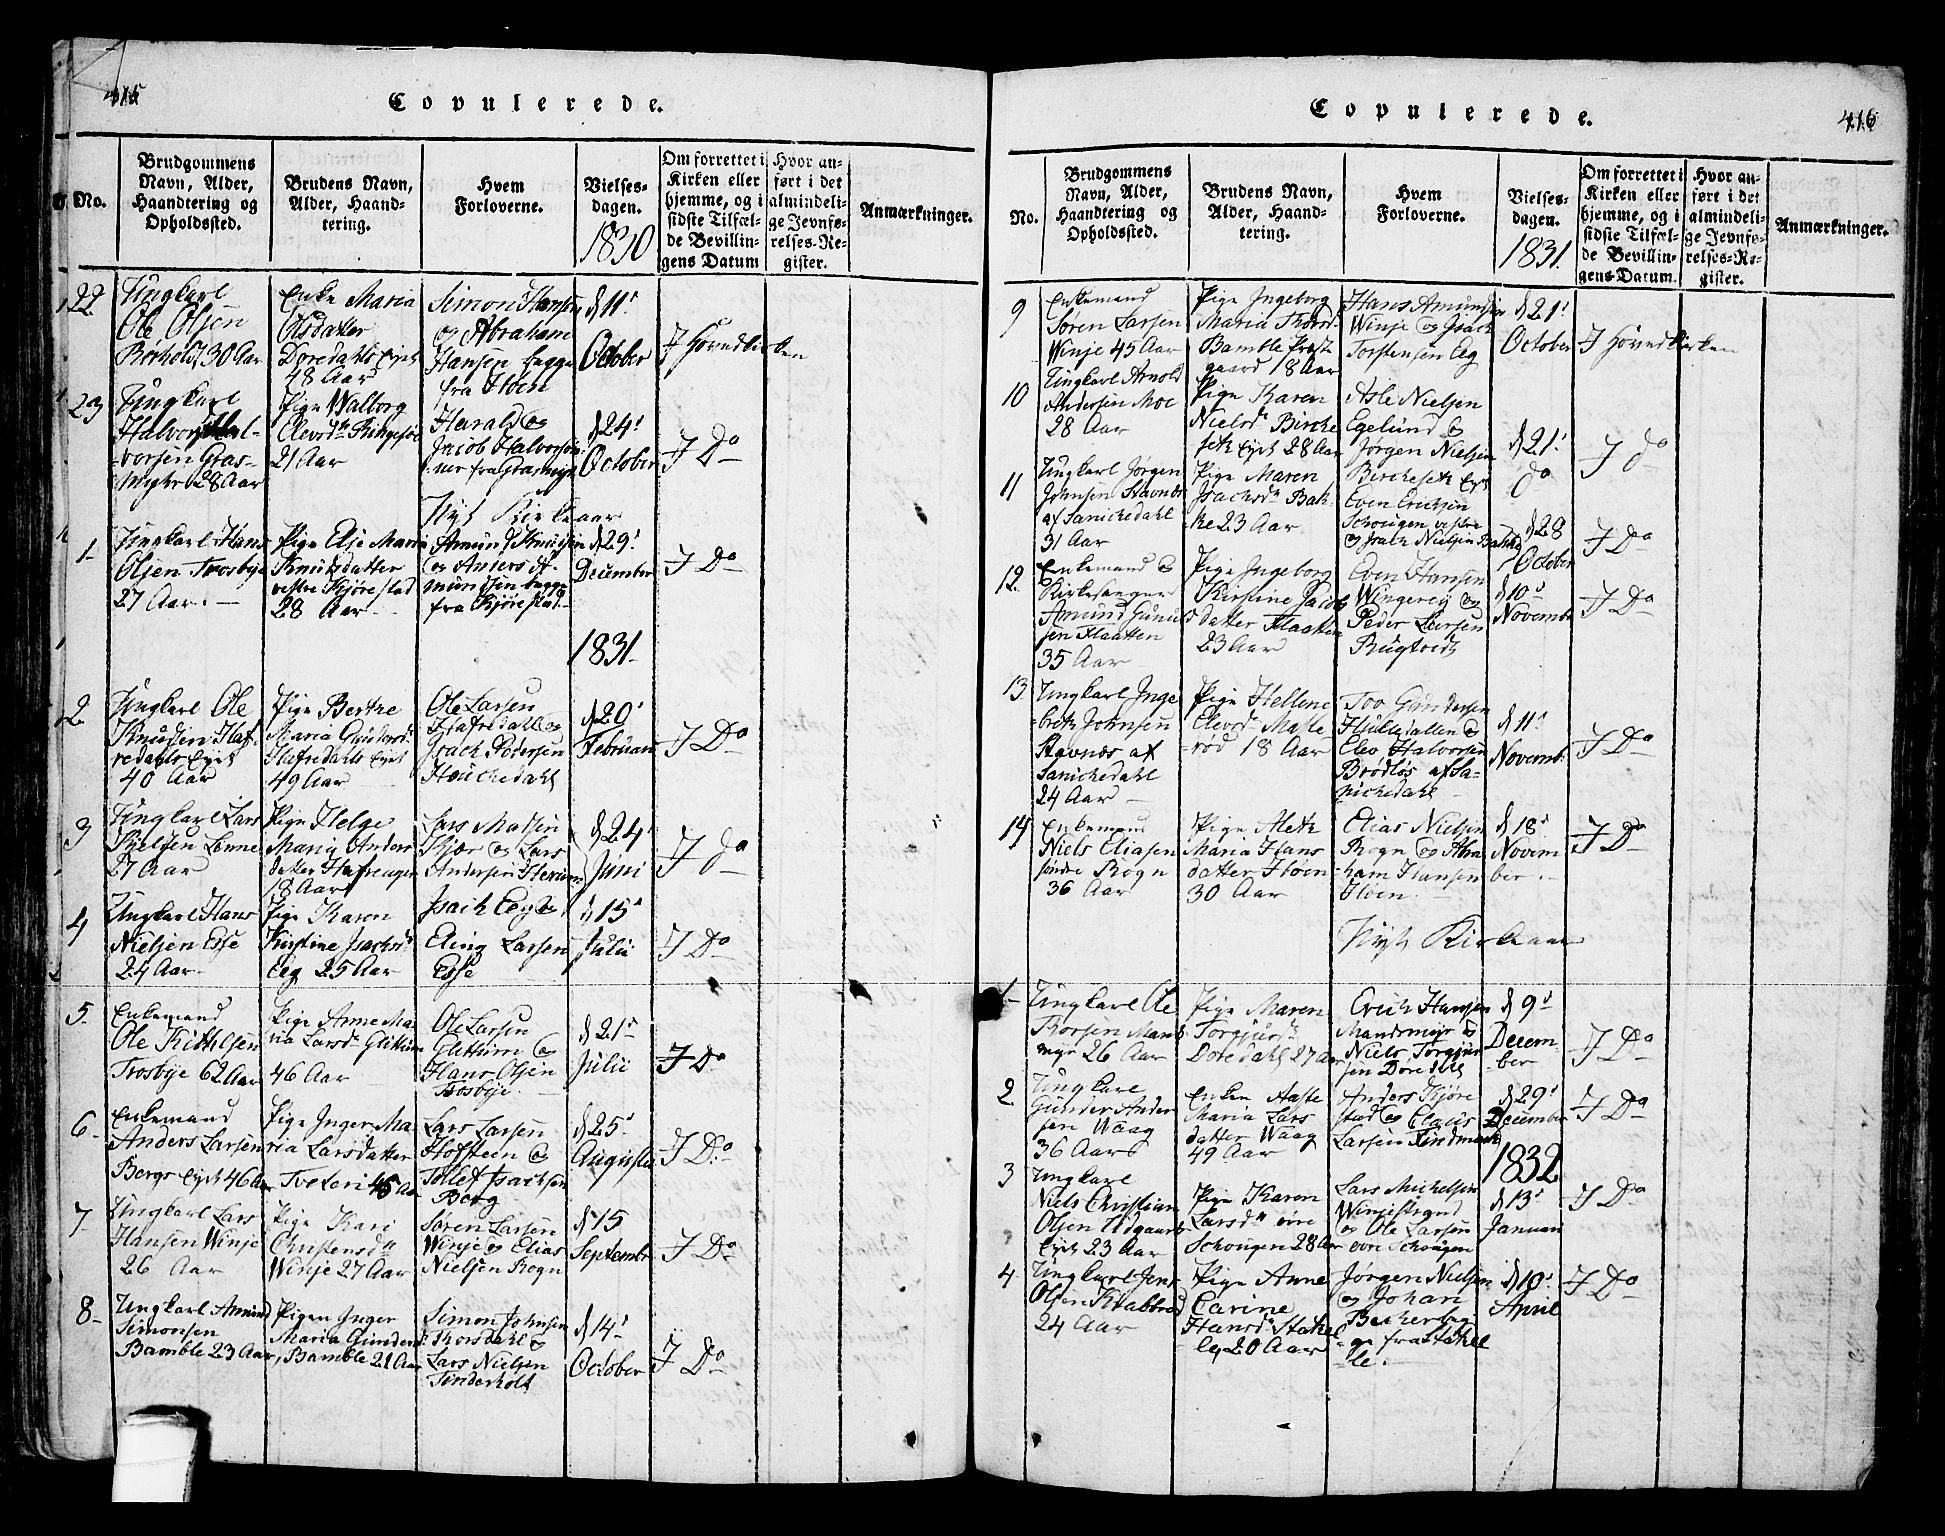 415
Copulerede.
No.
Brudgommens
Navn, Alder,
Haandtering og
Opholdssted.
Brudens Navn,
Alder, Haand-
tering.
Hvem
Forloverne.
Vielses-
dagen.
1830
Om forrettet i
Kirken eller
hjemme, og i
sidste Tilfæl-
de Bevillin-
gens Datum
Hvor an-
ført i det
almindeli-
ge Jevnfø-
relses-Re-
gister.
Anmærkninger.
22.
Ungkarl
Ole Olsen
Rørholt, 30 Aar
Enke Maria
Olsdatter
Doredahls Eyet
48 Aar
Simon Hansen
og Abraham
Hansen begge
fra Hoen
d 11t
October
I Hovedkirken
23
Ungkarl
Halvor Hal-
vorsen Gras-
myhr 28 Aar
Pige Walborg
Elevsdr
21 Aar
Harald og
Jacob Halvorsøn-
ner fra Grasmyr
d 24t
October
I Do
Nyt Kirkeaar
1-
Ungkarl Hans
Olsen Trosbye
27 Aar.
Pige Else Maria
Knudsdatter
vestre Kjørestad
28 Aar
Amund Knudsen
og Anders A-
mundsen begge
fra Kjørestad
d 29t
December
I Do
1831.
2
Ungkarl Ole
Knudsen Haf-
redahls Eyet
40 Aar
Pige Berthe
Maria Gundersdr
Hafredahls Eyet
49 Aar
Ole Larsen
Hafredahl og
Isach Pedersen
Houchedahl
d 20t
Februari
I Do
3
Ungkarl Lars
Nielsen Lønne
27 Aar
Pige Helge
Maria Anders
datter Hafreager
18 Aar
Lars Madsen
Kjær og Lars
Andersen
d 24t
Juni
I do
4
Ungkarl Hans
Nielsen Esse
24 Aar.
Pige Karen
Kirstine Isachsdr
Eeg 25 Aar
Isach Eeg &
Eling Larsen
Esse
d 15t
Julii
I Do
5
Enkemand
Ole Kittilsen
Trosbye 62 Aar
Pige Anne Ma-
ria Larsdr Glittum
46 Aar
Ole Larsen
Glittum og
Hans Olsen
Trosbye.
d 21t
Julii
I Do
6-
Enkemand
Anders Larsen
Bergs Eyet 46 Aar
Pige Inger Ma-
ria Larsdatter
Tveten 45 Aar
Lars Larsen
Hofsteen og
Tollef Isachsen
Berg
d 25t
Augusti
I Do
7
Ungkarl Lars
Hansen Winje
26 Aar
Pige Kari
Christensdr
Winje 27 Aar
Søren Larsen
Winje og Elias
Nielsen Rogn
d 15
Septembr
I Do
8-
Ungkarl Amund
Simonsen
Bamble 23 Aar
Pigen Inger
Maria Gundersd:
Bamble 21 Aar
Simon Johnsen
Thorsdahl &
Lars Nielsen
Tinderholt
d 14t
October
I Do
416
Copulerede.
No.
Brudgommens
Navn, Alder,
Haandtering og
Opholdssted.
Brudens Navn,
Alder, Haand-
tering.
Hvem
Forloverne.
Vielses-
dagen.
1831.
Om forrettet i
Kirken eller
hjemme, og i
sidste Tilfæl-
de Bevillin-
gens Datum.
Hvor an-
ført i det
almindeli-
ge Jevnfø-
relses-Re-
gister.
Anmærkninger.
9
Enkemand
Søren Larsen
Winje 45 Aar
Pige Ingeborg
Maria Thorsd
Bamble Præst
gaard 18 Aar
Hans Amundsen
Winje og Isach
Torstensen Eeg
d 21t
October
I Hovedkirken
10
Ungkarl Arnold
Andersen Moe
28 Aar
Pige Karen
Nielsdr Birche
seth Eyet 28 Aar
Asle Nielsen
Egelund &
Jørgen Nielsen
Bircheseth Eyet
d 21t
do
I do
11
Ungkarl Jørgen
Johnsen Stavnæs
af Sanichedahl
31 Aar
Pige Maren
Isachsdr Bak-
ke 23 Aar
Even Erichsen
Schougen vestre
og Isach Nielsen Bakke
d 28
October
I Do
12.
Enkemand &
Kirkesanger
Amund Gunul
sen Flaatten
35 Aar
Pige Ingeborg
Kirstine Jacobs
datter Flaatten
23 Aar
Even Hansen
Wingereig og
Peder Larsen
Rugtvedt
d 10t
Novembr
I Do
13.
Ungkarl Inge
breth Johnsen
Stavnæs af
Sanichedahl
24 Aar
Pige Hellene
Elevsdr Masle
rød 18 Aar
Tov Gundersen
&
Elev Halvorsen
Brødløs af Sa-
nichedahl
d 11t
Novemb:
I Do
14
Enkemand
Niels Eliasen
søndre Rogn
36 Aar
Pige Aleth
Maria Hans
datter Hoen
30 Aar
Elias Nielsen
Rogn og Abra
ham Hansen
Hoen.
d 18t
Novem
ber.
I Do
Nyt Kirkeaar
1-
Ungkarl Ole
Torsen Mands
myr 26 Aar
Pige Maren
Torgjusdr
Doredahl 27 Aar
Erich Hansen
Mandsmyr &
Niels Torgjus
sen Doredahl
d 9t
Decem-
ber
I Do
2
Ungkarl
Gunder Ander
sen Waag
36 Aar
Enken Aaste
Maria Lars
datter Waag
49 Aar
Anders Kjøre
stad og Claus
Larsen Findmark
d 29t
December
I Do
1832
3
Ungkarl
Niels Christian
Olsen Udgaard
Eyet 23 Aar
Pige Karen
Larsdr øvre
Schougen 28 Aar
Lars Michelsen
Winjestrand
og Ole Larsen
øvre Schougen
d 13t
Januari
I Do
4
Ungkarl Jens
Olsen Krabberød
24 Aar
Pige Anne
Carine
Hansdr Stokel
le, 20 Aar
Jørgen Nielsen
og Johan
fra Stokel
le.
d 10t
April
I Do